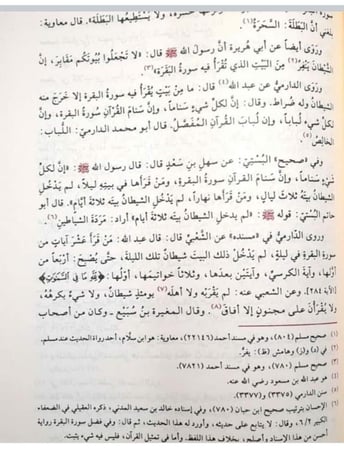 بلغني أنّ البَطَلَة: السَّحَرَة(١).
وروى أيضاً عن أبي هريرة أنَّ رسول الله ﷺ قال: «لا تَجعلُوا بُيوتَكُم مقابرَ، إنَّ
الشيطانَ يَنفِرُ(٢) مِنَ البَيْتِ الذي تُقرَأُ فيه سورةُ البقرة»(٣).
وروى الدارميُّ عن عبد الله(٤) قال: ما مِنْ بيتٍ يُقرأ فيه سورةُ البقرة إلا خَرَجَ منه
الشيطانُ وله ضُراط. وقال: إنَّ لكلِّ شيءٍ سَناماً، وإنَّ سَنامَ القرآنِ سُورةُ البقرةِ، وإنَّ
لكلِّ شيءٍ لُباباً، وإنَّ لُبابَ القرآنِ المُفصَّل. قال أبو محمد الدارميُّ: اللُّباب:
الخالصُ(٥).
وفي «صحيح» البُسْتِيِّ: عن سهلِ بنِ سَعْدٍ قال: قال رسول الله ﷺ: «إنَّ لكلِّ
شيءٍ سَناماً، وإنَّ سَنامَ القرآنِ سورةُ البقرة، ومَنْ قرأها في بيتِه ليلاً، لم يَدخُلِ
الشيطانُ بيتَه ثلاثَ ليالٍ، ومَنْ قرأها نهاراً، لم يَدْخُلِ الشيطانُ بيتَه ثلاثةَ أيَّام». قال أبو
حاتم البُستيُّ: قوله ﷺ: «لم يدخل الشيطانُ بيتَه ثلاثةَ أيام» أراد: مَرَدَةَ الشياطين(٦).
وروى الدَّارميُّ في «مسنده» عن الشَّعْبيِّ قال: قال عبد الله: مَنْ قرأَ عَشْرَ آياتٍ من
سورةِ البقرةِ في ليلةٍ، لم يَدْخُلْ ذلك البيتَ شيطانٌ تلك الليلةَ، حتَّى يُصبحَ: أربعاً من
أوَّلها، وآيةَ الكرسيِّ، وآيتَين بعدَها، وثلاثاً خواتيمَها، أوَّلُها: ﴿لِلَّهِ مَا فِي السَّمَاوَاتِ﴾
[الآية ٢٨٤]. وعن الشعبي عنه: لم يَقْرَبْه ولا أهلَه(٧) يومئذٍ شيطانٌ، ولا شيءٌ يكرهُه،
ولا يُقْرَأْنَ على مجنونٍ إلا أفاقَ(٨). وقال المغيرة بنُ سُبَيْع ـ وكان من أصحاب
(١) صحيح مسلم (٨٠٤)، وهو في مسند أحمد (٢٢١٤٦)، معاوية: هو ابن سلّام، أحد رواة الحديث عند مسلم.
(٣) صحيح مسلم (٧٨٠)، وهو في مسند أحمد (٧٨٢١)
(٤) هو عبد الله بن مسعود رضي الله عنه.
(٥) سنن الدارمي (٣٣٧٥) و(٣٣٧٧).
(٦) الإحسان بترتيب صحيح ابن حبان (٧٨٠)، وفي إسناده خالد بن سعيد المدني، ذكره العقيلي في الضعفاء
الكبير ٦/٢، وقال: لا يتابع على حديثه، وأورد له هذا الحديث، ثم قال: وفي فضل سورة البقرة رواية
أحسن من هذا الإسناد وأصلح، بخلاف هذا اللفظ، وأما في تمثيل القرآن، فليس فيه شيء يثبت.